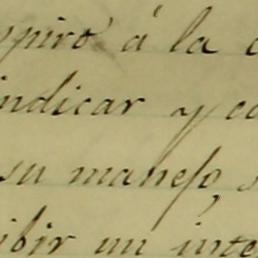 spiró á la c
indicar y co
su manejo, s
ibir un inte